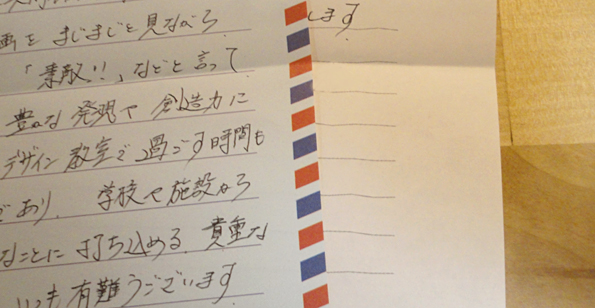 画を まじまじと見ながら
「素敵!!」などと言って
豊かな 発現や 創造力に
デザイン教室で過ごす時間も
であり、 学校や施設から
なことに打ち込める、貴重な
いつも有難うございます
します